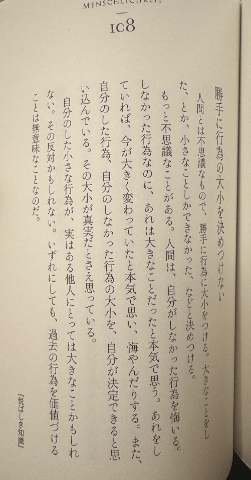 MENSCHLICHKEIT
108
勝手に行為の大小を決めつけない
人間とは不思議なもので、勝手に行為に大小をつける。大きなことをし
た、とか、小さなことしかできなかった、などと決めつける。
もっと不思議なことがある。人間は、自分がしなかった行為を悔いる。
しなかった行為なのに、あれは大きなことだったと本気で思う。あれをし
ていれば、今が大きく変わっていたと本気で思い、悔やんだりする。また、
自分のした行為、自分のしなかった行為の大小を、自分が決定できると思
い込んでいる。その大小が真実だとさえ思っている。
自分のした小さな行為が、実はある他人にとっては大きなことかもしれ
ない。その反対かもしれない。いずれにしても、過去の行為を価値づける
ことは無意味なことなのだ。
『悦ばしき知識』